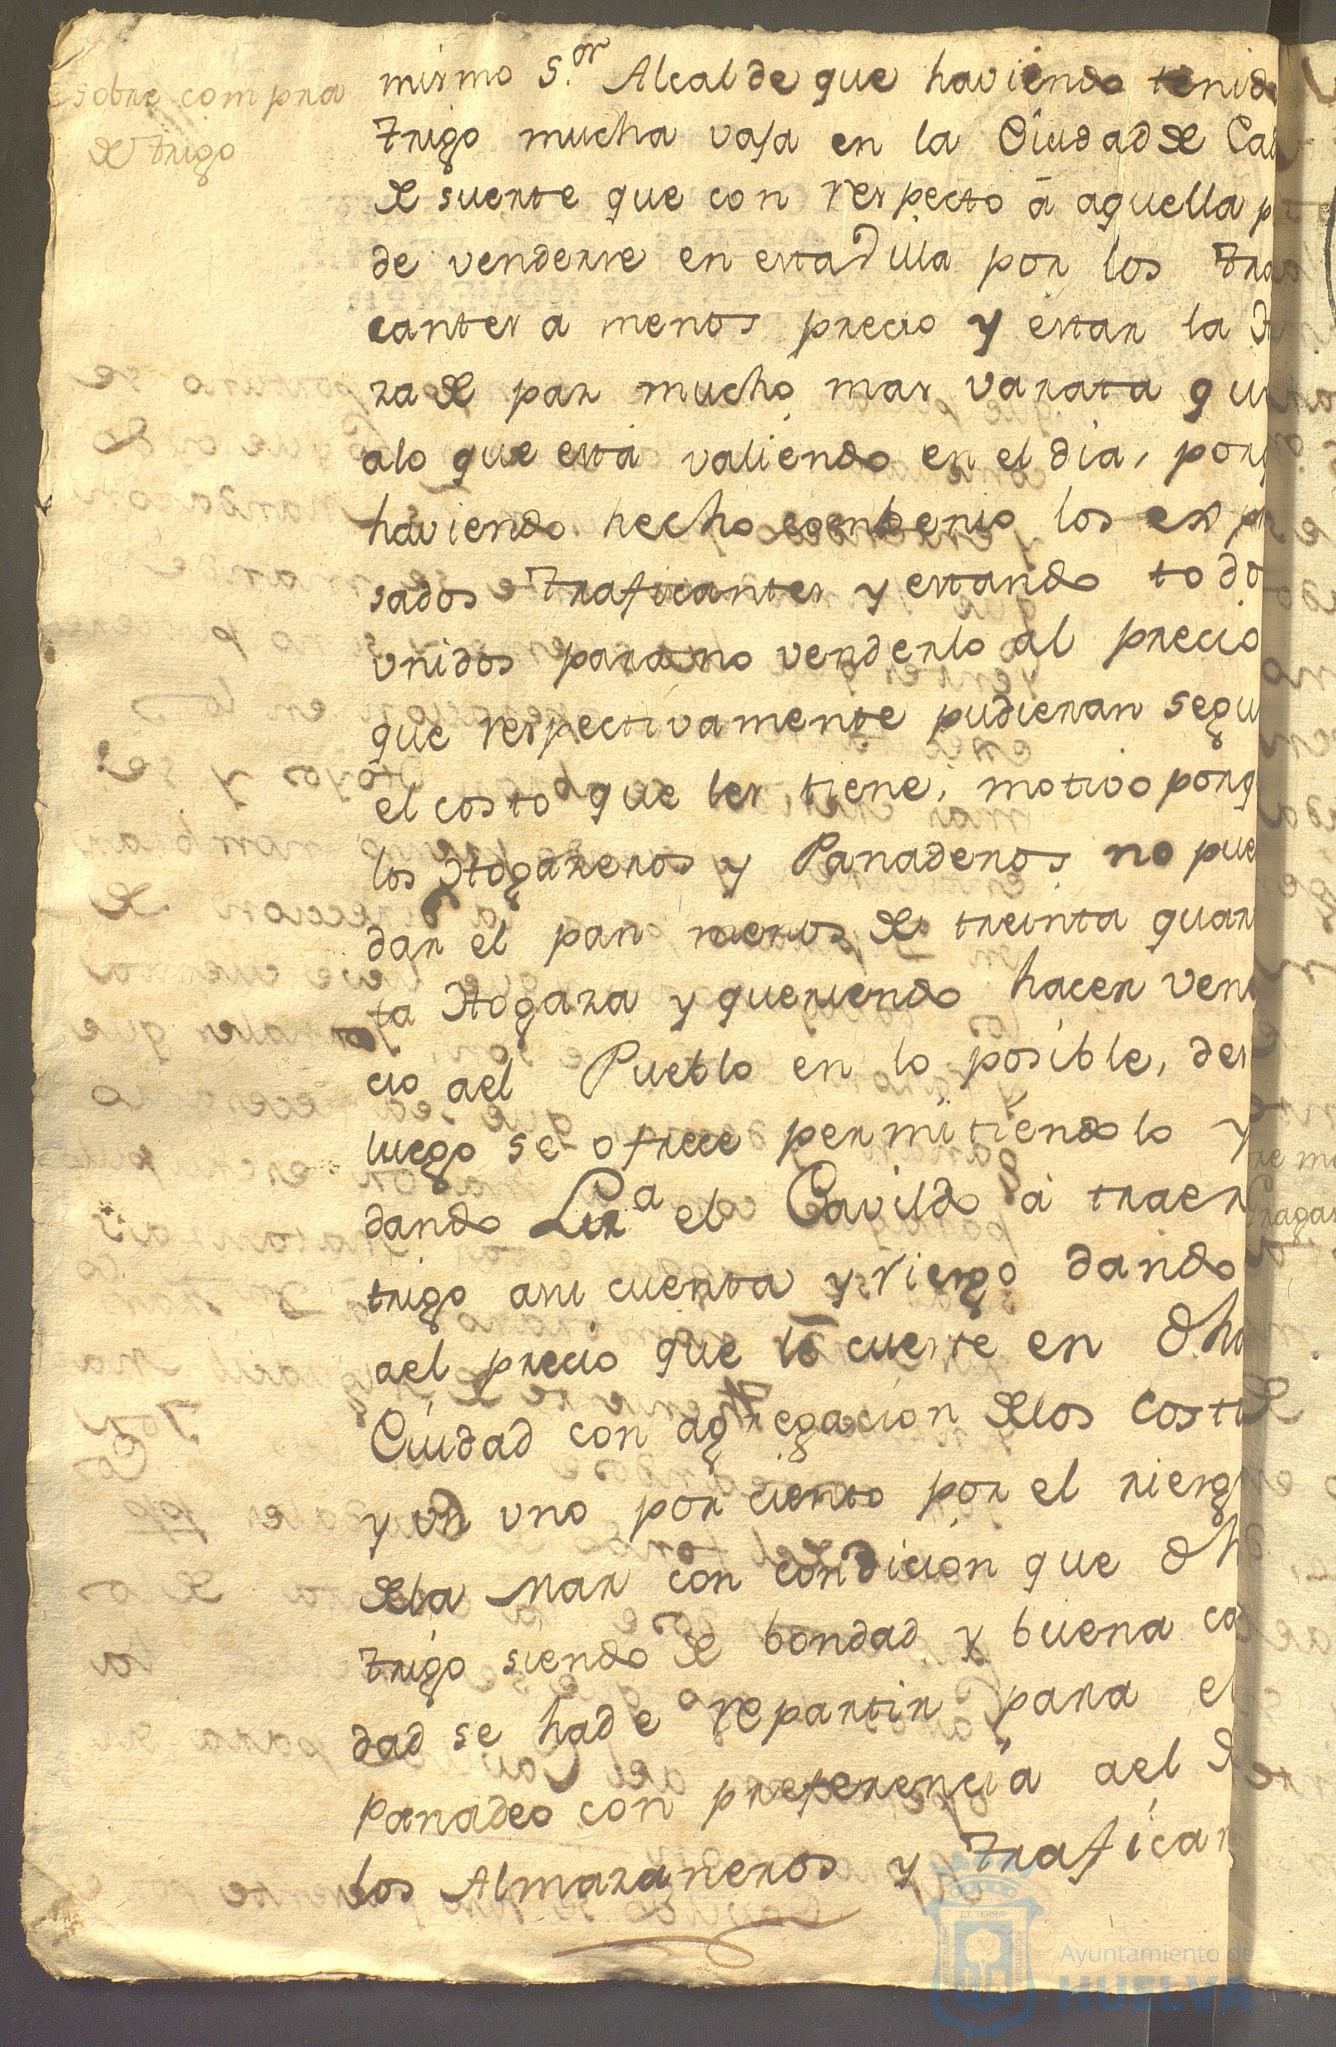 sobre compra
de trigo
mismo S.or Alcalde que haviendo tenido
trigo mucha vaja en la Ciudad de
de suerte que con respecto á aquella
de venderse en esta Villa por los tra
cantes a menos precio y estar la
za de pan mucho mas varata
alo que está valiendo en el dia,
haviendo hecho conbenio los
sados traficantes y estando todo
vnidos para no venderlo al precio
que respectivamente pudieran segu
el costo que les tiene, motivo porq
los Hogazeros y Panaderos no pue
dar el pan menos de treinta quar
ta Hogaza y queriendo hacer
cio ael Pueblo en lo posible, des
luego se ofrece permitiendolo y
dando Liz.a el Cavildo á traer
trigo asu cuenta y riesgo dando
ael precio que le cueste en dha
Ciudad con agregacion delos Costo
y un uno por ciento por el riesg
dela Mar con condicion que dh
trigo siendo de bondad y buena ca
dad se hade repartir para el
Panadeo con preferencia ael d
los Almazaneros y trafican
Ayuntamiento de
HUELVA